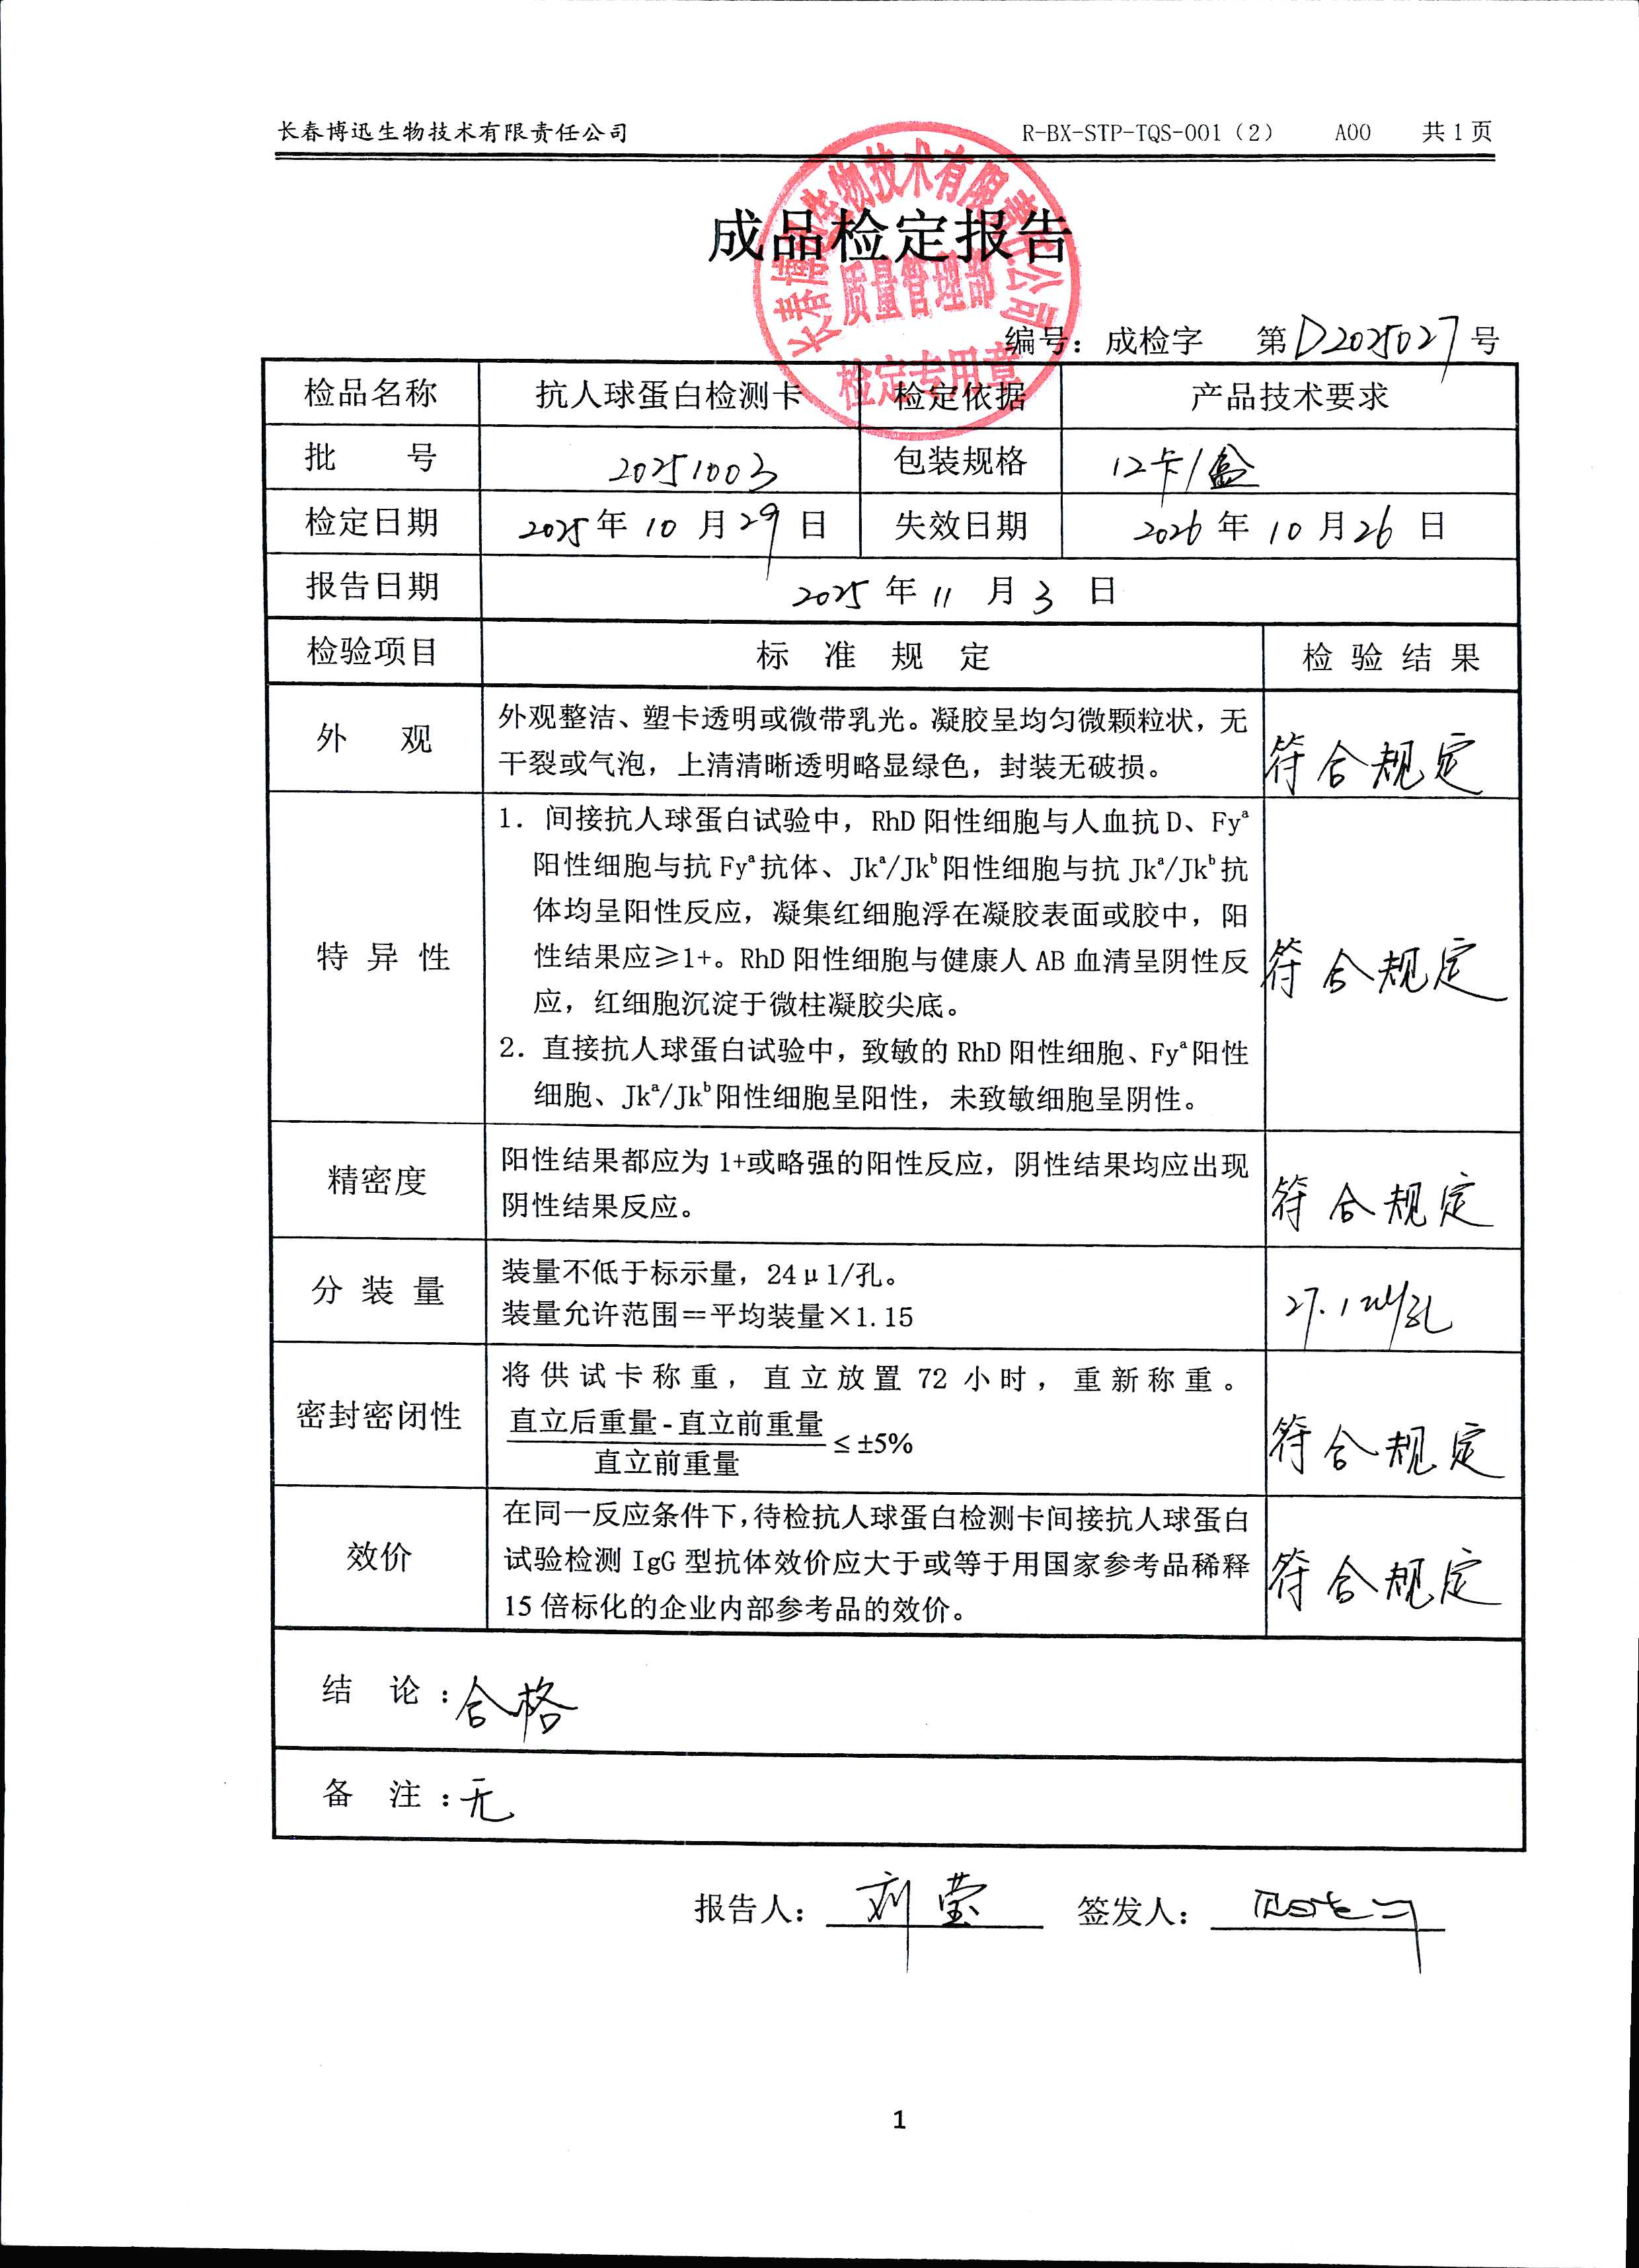 长春博迅生物技术有限责任公司 R-BX-STP-TQS-001（2） A00 共1页
成品检定报告
长春博迅生物技术有限责任公司
质量管理部
检定专用章
编号：成检字 第D2025027号
检品名称 抗人球蛋白检测卡 检定依据 产品技术要求
批 号 20251003 包装规格 12卡/盒
检定日期 2025年10月29日 失效日期 2026年10月26日
报告日期 2025年11月3日
检验项目 标准规定 检验结果
外 观
外观整洁、塑卡透明或微带乳光。凝胶呈均匀微颗粒状，无
干裂或气泡，上清清晰透明略显绿色，封装无破损。
符合规定
特异性
1. 间接抗人球蛋白试验中，RhD阳性细胞与人血抗D、Fyᵃ
阳性细胞与抗Fyᵃ抗体、Jkᵃ/Jkᵇ阳性细胞与抗Jkᵃ/Jkᵇ抗
体均呈阳性反应，凝集红细胞浮在凝胶表面或胶中，阳
性结果应≥1+。RhD阳性细胞与健康人AB血清呈阴性反
应，红细胞沉淀于微柱凝胶尖底。
2. 直接抗人球蛋白试验中，致敏的RhD阳性细胞、Fyᵃ阳性
细胞、Jkᵃ/Jkᵇ阳性细胞呈阳性，未致敏细胞呈阴性。
符合规定
精密度
阳性结果都应为1+或略强的阳性反应，阴性结果均应出现
阴性结果反应。
符合规定
分装量
装量不低于标示量，24μl/孔。
装量允许范围＝平均装量×1.15
27.1μl/孔
密封密闭性
将供试卡称重，直立放置72小时，重新称重。
直立后重量-直立前重量
直立前重量
≤±5%
符合规定
效价
在同一反应条件下,待检抗人球蛋白检测卡间接抗人球蛋白
试验检测IgG型抗体效价应大于或等于用国家参考品稀释
15倍标化的企业内部参考品的效价。
符合规定
结 论：合格
备 注：无
报告人：刘莹 签发人：
1